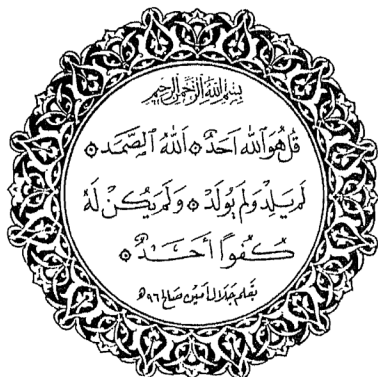 بِسْمِ اللهِ الرَّحْمٰنِ الرَّحِيمِ
قُلْ هُوَ اللهُ أَحَدٌ ۞ اَللهُ الصَّمَد ۞
لَمْ يَلِدْ وَلَمْ يُولَدْ ۞ وَلَمْ يَكُنْ لَهُ
كُفُوًا أَحَدٌ ۞
بقلم جلال امين صالح ٩٦ هـ